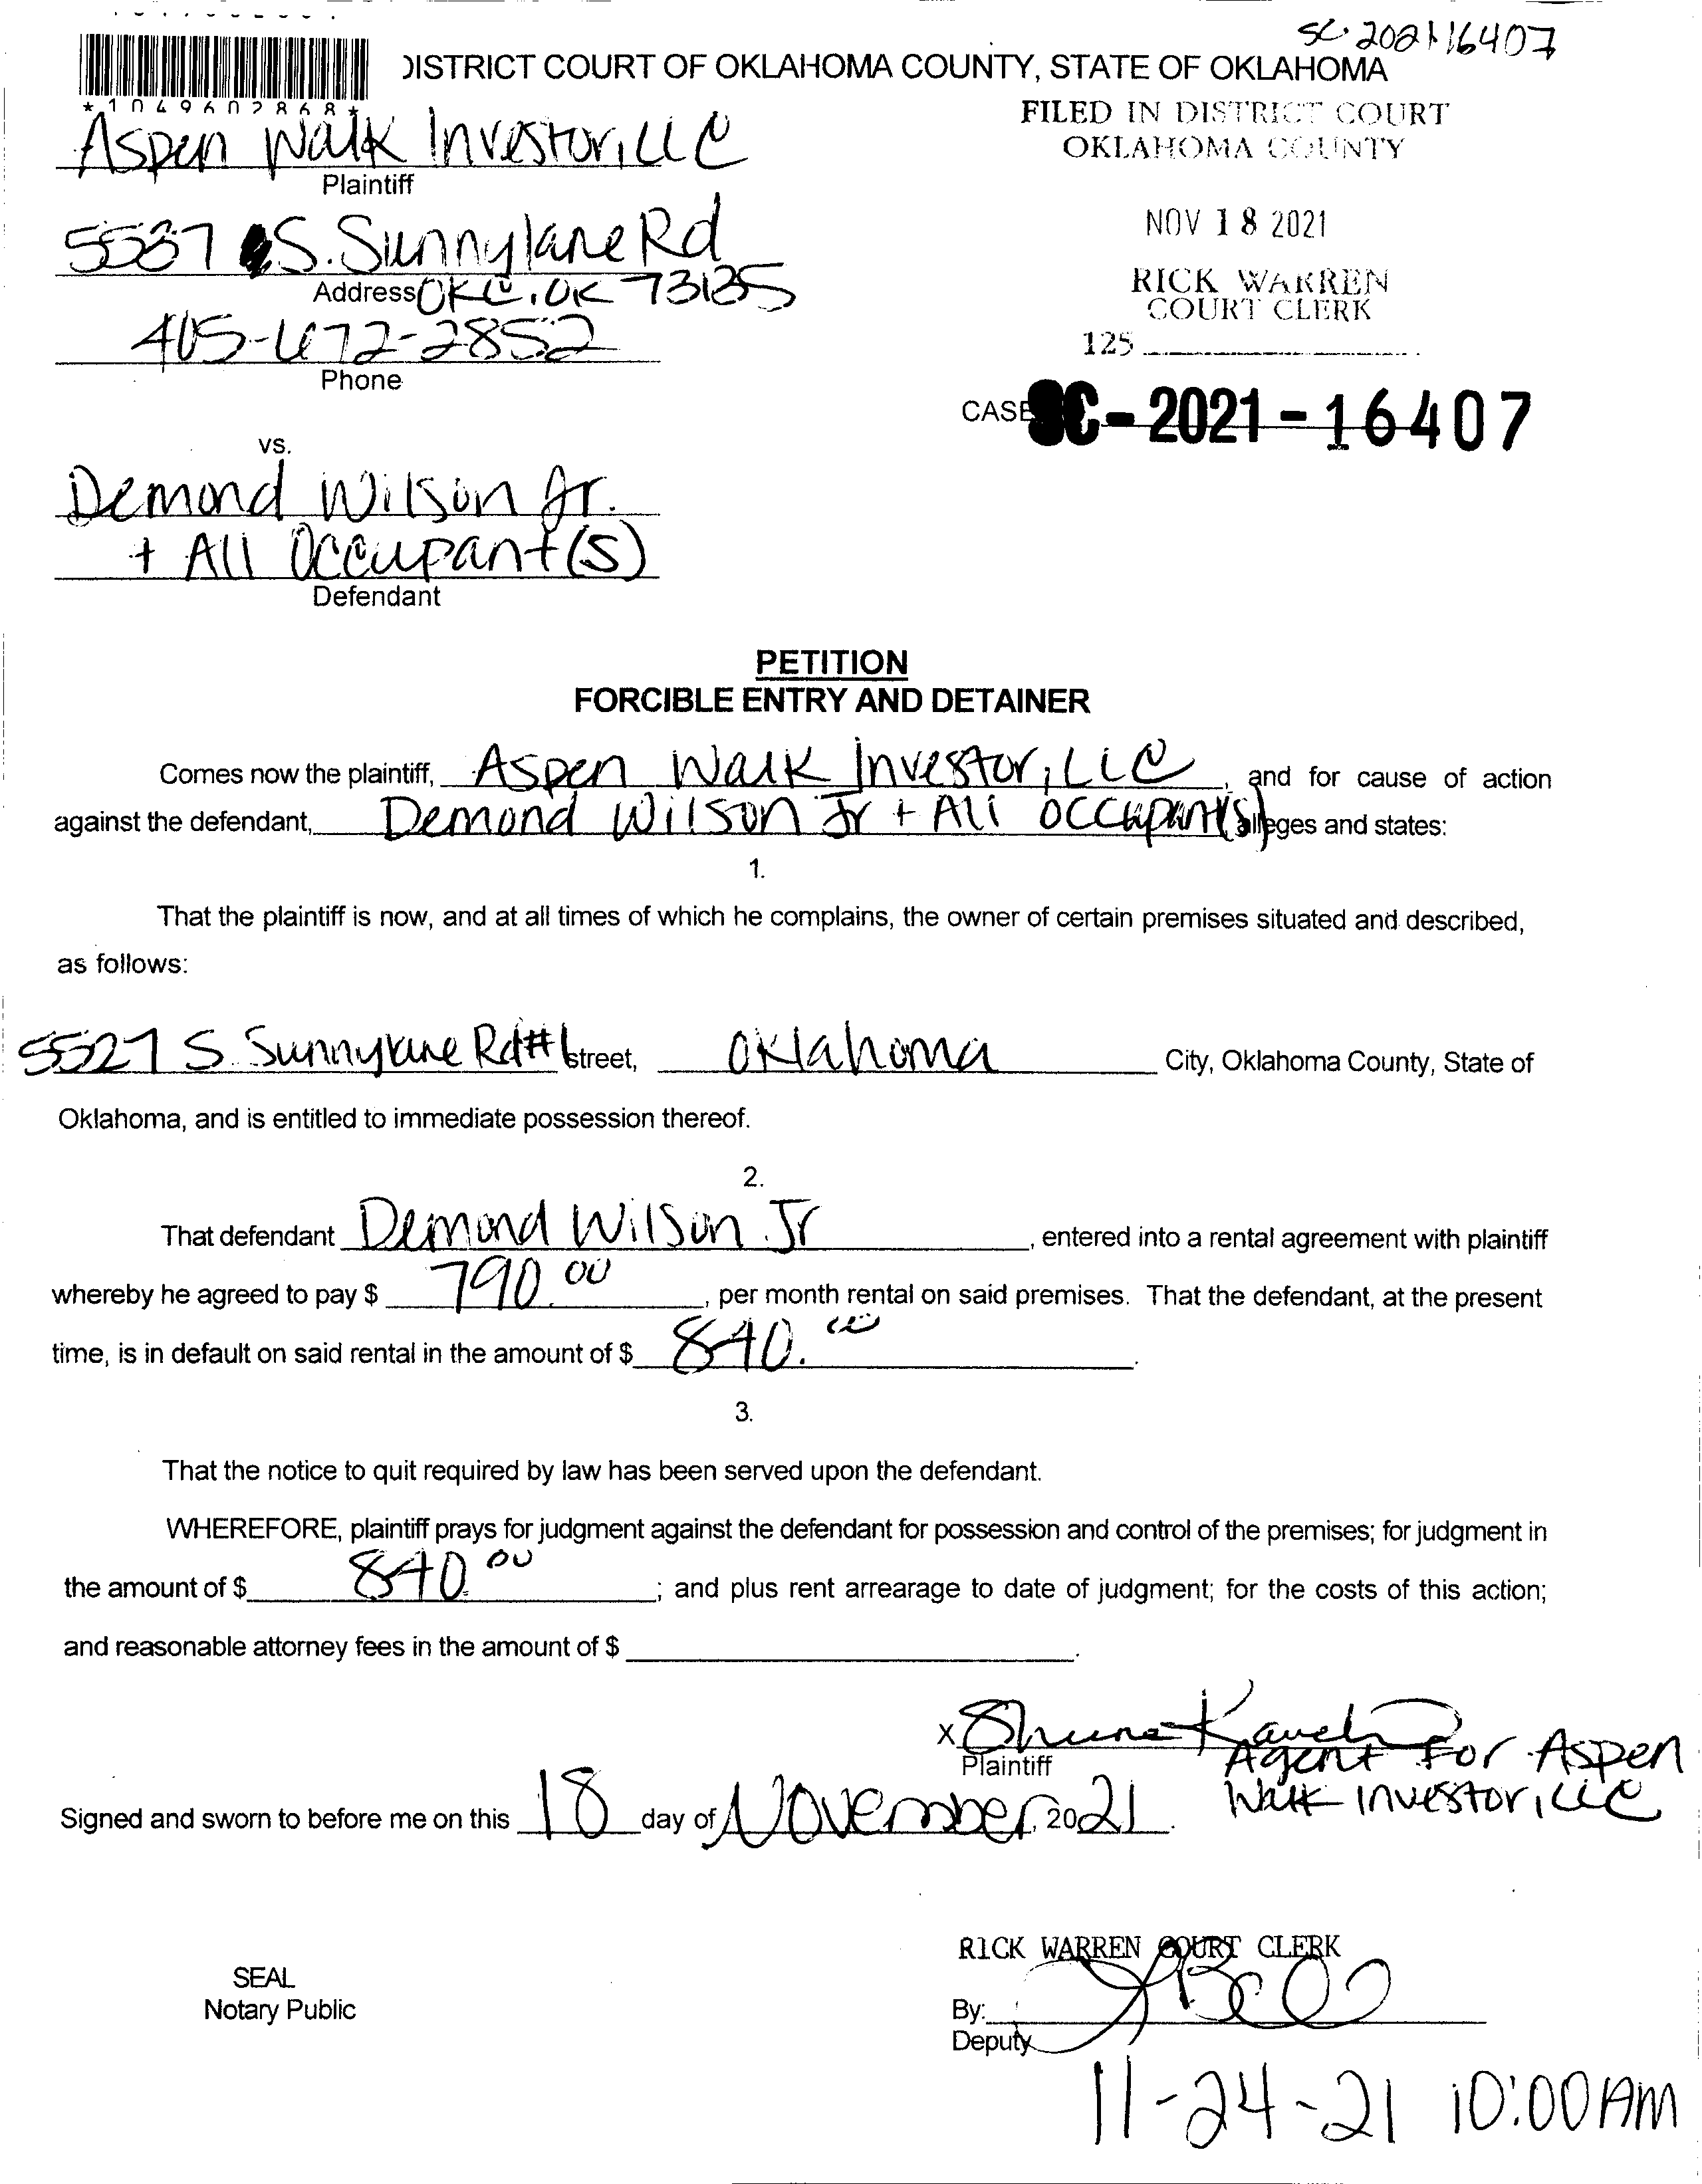 SC-2021-16407
DISTRICT COURT OF OKLAHOMA COUNTY, STATE OF OKLAHOMA
*1049602868*
FILED IN DISTRICT COURT
OKLAHOMA COUNTY
Aspen Walk Investor, LLC
Plaintiff
NOV 18 2021
5537 S. Sunnylane Rd
Address OKC, OK 73135
RICK WARREN
COURT CLERK
125
405-672-2852
Phone
CASE SC-2021-16407
vs.
Demond Wilson Jr.
+ All Occupant(s)
Defendant
PETITION
FORCIBLE ENTRY AND DETAINER
Comes now the plaintiff, Aspen Walk Investor, LLC, and for cause of action
against the defendant, Demond Wilson Jr + All occupant(s) alleges and states:
1.
That the plaintiff is now, and at all times of which he complains, the owner of certain premises situated and described,
as follows:
5527 S Sunnylane Rd # street, Oklahoma City, Oklahoma County, State of
Oklahoma, and is entitled to immediate possession thereof.
2.
That defendant Demond Wilson Jr, entered into a rental agreement with plaintiff
whereby he agreed to pay $ 790.00, per month rental on said premises. That the defendant, at the present
time, is in default on said rental in the amount of $ 840.00.
3.
That the notice to quit required by law has been served upon the defendant.
WHEREFORE, plaintiff prays for judgment against the defendant for possession and control of the premises; for judgment in
the amount of $ 840.00; and plus rent arrearage to date of judgment; for the costs of this action;
and reasonable attorney fees in the amount of $ .
X
Plaintiff
Agent For Aspen
Walk Investor, LLC
Signed and sworn to before me on this 18 day of November, 2021.
RICK WARREN COURT CLERK
SEAL
Notary Public
By:
Deputy
11-24-21 10:00AM